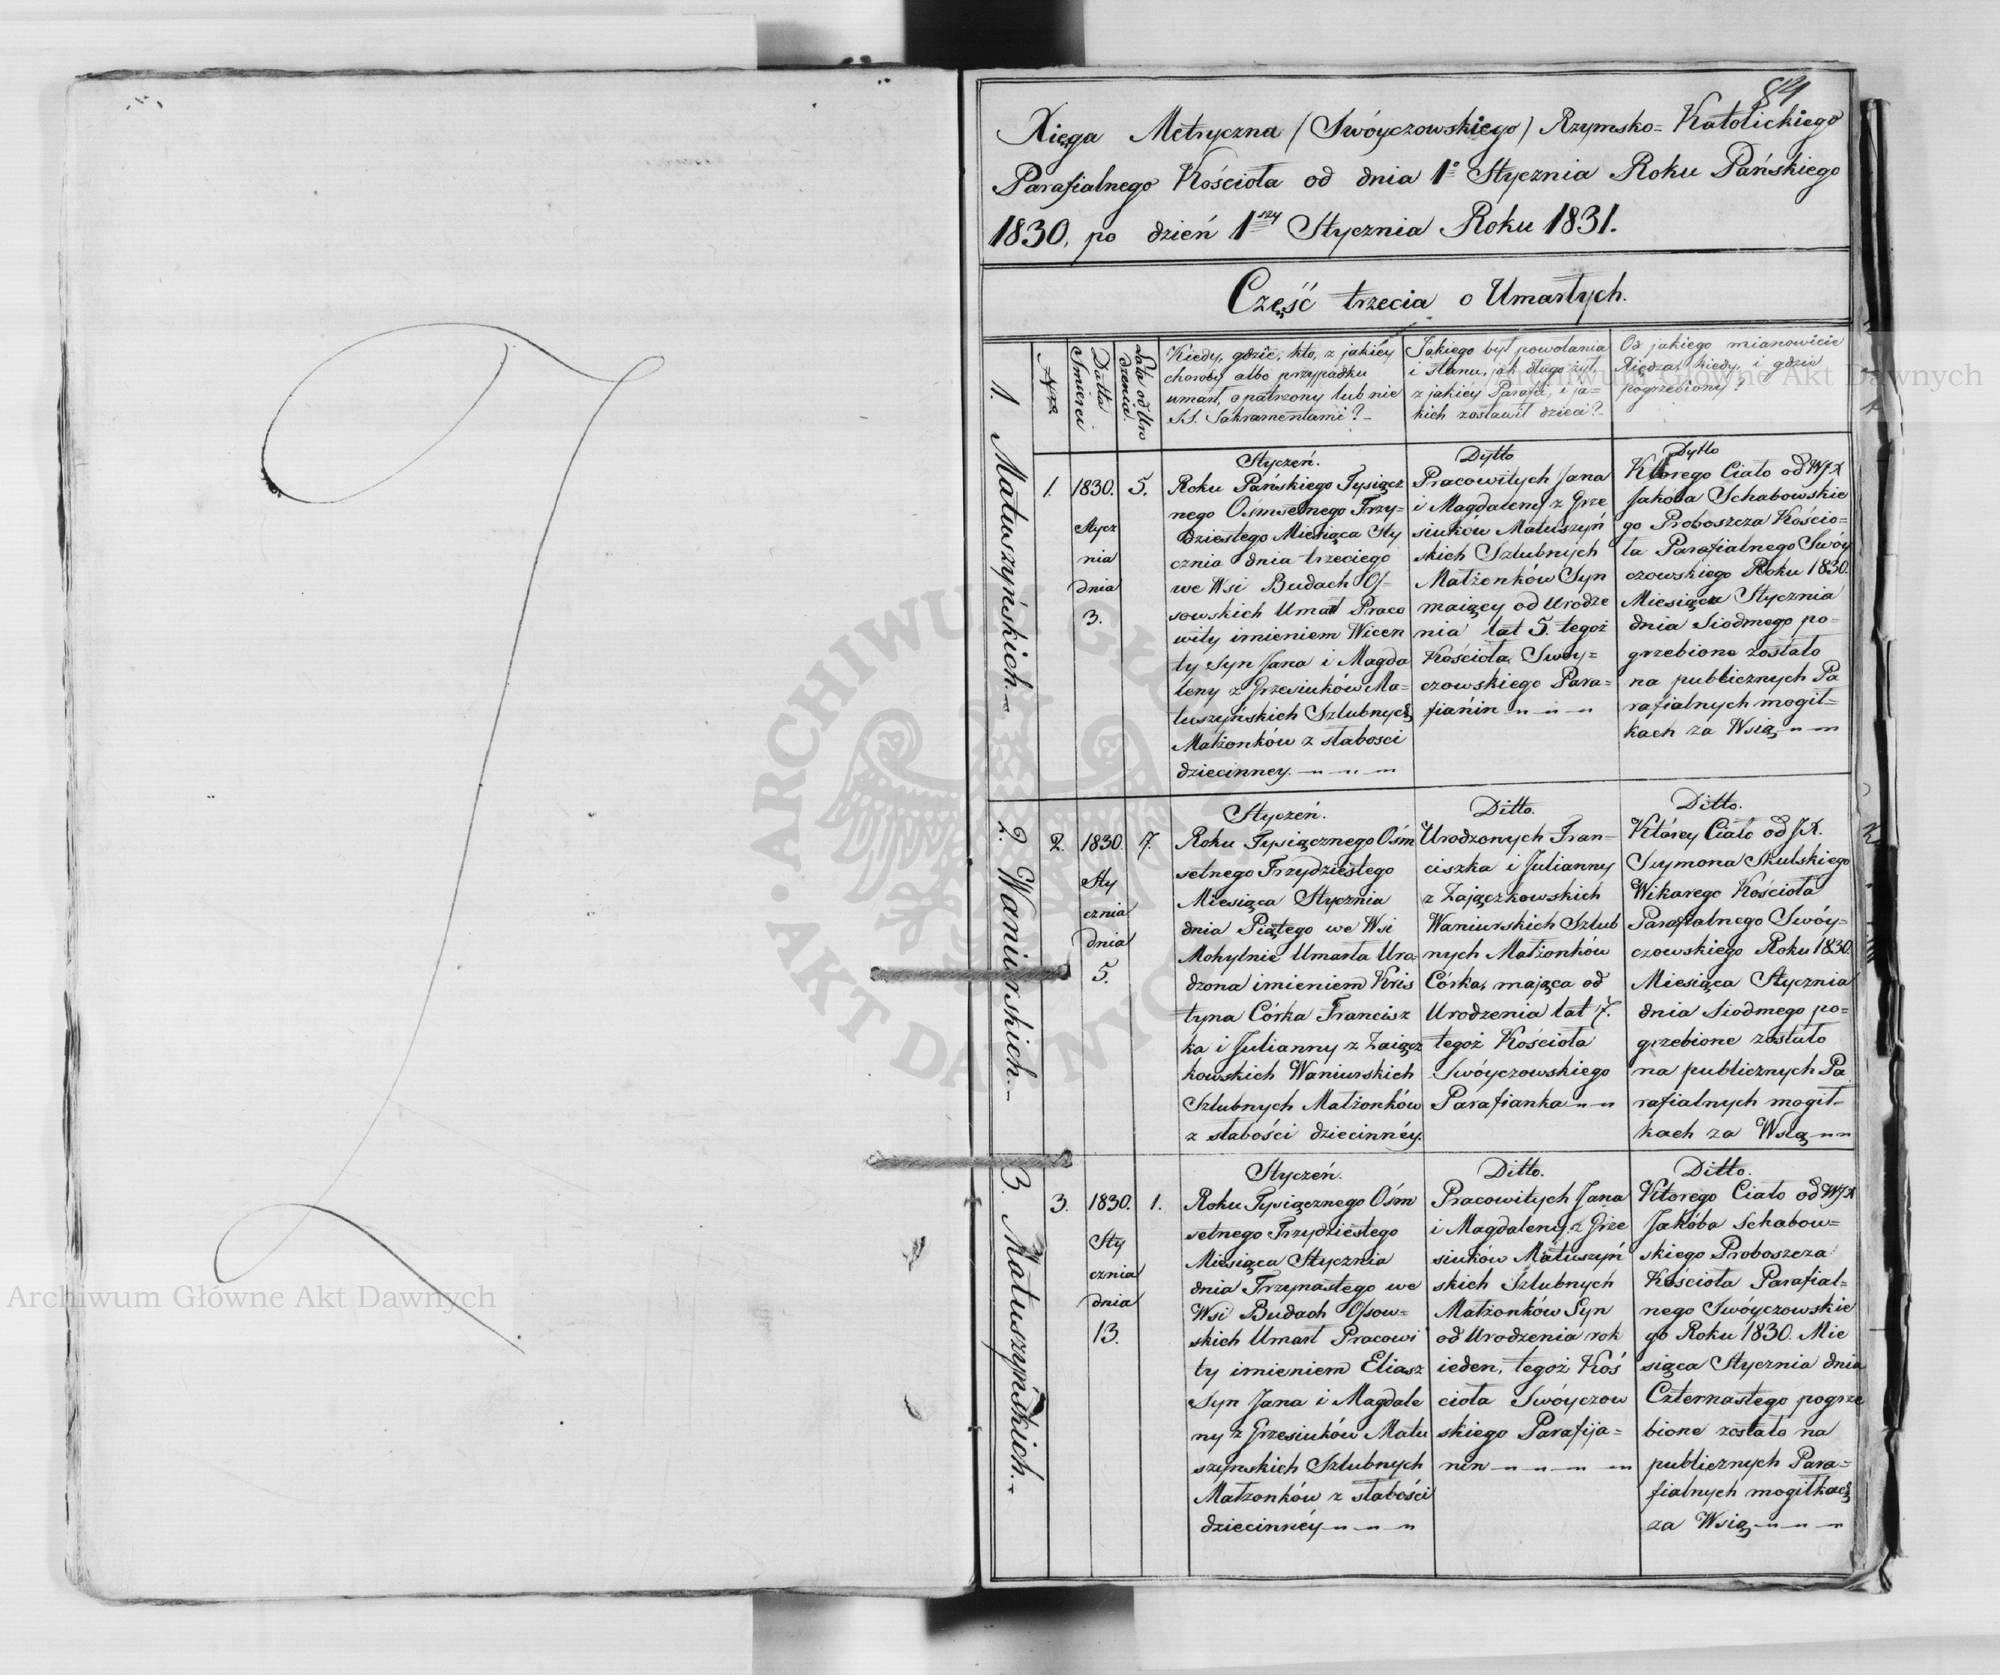 84
Xięga Metryczna (Swóyczowskiego) Rzymsko=Katolickiego
Parafialnego Kościoła od dnia 1o Stycznia Roku Pańskiego
1830, po dzień 1szy Stycznia Roku 1831.
Część trzecia o Umarłych.
Datta
Smierci
Lata od Uro
dzenia.
Kiedy, gdzie, kto, z jakiéy
choroby albo przypadku
umarł, opatrzony lub nie
S.S. Sakramentami?
Jakiego był powołania
i stanu, jak długo żył,
z jakiéy Parafii, i ja=
kich zostawił dzieci?
Od jakiego mianowicie
Xiędza, kiedy, i gdzie
pogrzebiony?
1. Matuszyńskich.
1.
1830.
Stycz
nia
dnia
3.
5.
Styczeń.
Roku Pańskiego Tysiącz
nego Ośmsetnego Trzy=
dziestego Miesiąca Sty
cznia dnia trzeciego
we Wsi Budach Os=
sowskich Umarł Praco
wity imieniem Wicen
ty Syn Jana i Magda
leny z Grzesiuków Ma=
tuszyńskich Szlubnych
Małżonków z słabosci
dziecinney.
Dytto
Pracowitych Jana
i Magdaleny z Grze
siuków Matuszyń
skich Szlubnych
Małżonków Syn
maiący od Urodze
nia lat 5. tegoż
Kościoła Swoy=
czowskiego Para=
fianin
Dytto
Którego Ciało od WJX
Jakóba Schabowskie
go Proboszcza Kościo=
ła Parafialnego Swóy
czowskiego Roku 1830.
Miesiąca Stycznia
dnia Siodmego po=
grzebione zostało
na publicznych Pa
rafialnych mogił=
kach za Wsią
2. Waniurskich.
2.
1830.
Sty
cznia
dnia
5.
7.
Styczeń.
Roku Tysiącznego Ośm
setnego Trzydziestego
Miesiąca Stycznia
dnia Piątego we Wsi
Mohylnie Umarła Uro=
dzona imieniem Kris
tyna Córka Francisz
ka i Julianny z Zaiącz
kowskich Waniurskich
Szlubnych Małżonków
z słabości dziecinnéy.
Ditto.
Urodzonych Fran=
ciszka i Julianny
z Zajączkowskich
Waniurskich Szlub
nych Małżonków
Córka, mająca od
Urodzenia lat 7.
tegoż Kościoła
Swóyczowskiego
Parafianka
Ditto.
Któréy Ciało od JX.
Szymona Skulskiego
Wikarego Kościoła
Parafialnego Swóy=
czowskiego Roku 1830.
Miesiąca Stycznia
dnia Siodmego po=
grzebione zostało
na publicznych Pa
rafialnych mogił=
kach za Wsią
3. Matuszyńskich.
3.
1830.
Sty
cznia
dnia
13.
1.
Styczeń.
Roku Tysiącznego Ośm
setnego Trzydziestego
Miesiąca Stycznia
dnia Trzynastego we
Wsi Budach Ossow=
skich Umarł Pracowi
ty imieniem Eliasz
Syn Jana i Magdale
ny z Grzesiuków Matu
szyńskich Szlubnych
Małżonków z słabości
dziecinnéy
Ditto.
Pracowitych Jana
i Magdaleny z Grze
siuków Matuszyń
skich Szlubnych
Małżonków Syn
od Urodzenia rok
ieden, tegoż Koś
cioła Swóyczow
skiego Parafija=
nin
Ditto.
Którego Ciało od WJX
Jakóba Schabow=
skiego Proboszcza
Kościoła Parafial=
nego Swóyczowskie
go Roku 1830. Mie
siąca Stycznia dnia
Czternastego pogrze
bione zostało na
publicznych Para=
fialnych mogiłkach
za Wsią
Archiwum Główne Akt Dawnych
Archiwum Główne Akt Dawnych